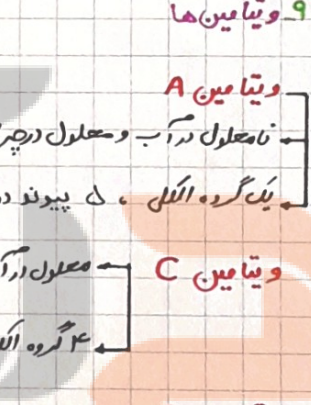 ۹_ ویتامین ها
ویتامین A
نامحلول در آب و محلول درچر
یک گروه الکلی ، ۵ پیوند د
ویتامین C
محلول در آ
۴ گروه الک